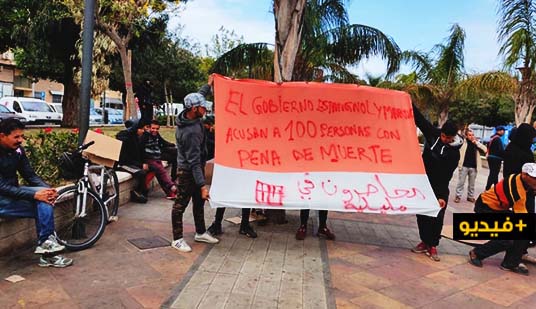 EL GOBIERNO ESPAÑOL Y MARROQUI
ACUSAN A 100 PERSONAS CON
PENA DE MUERTE
محاصرون في
مليلية
+فيديو